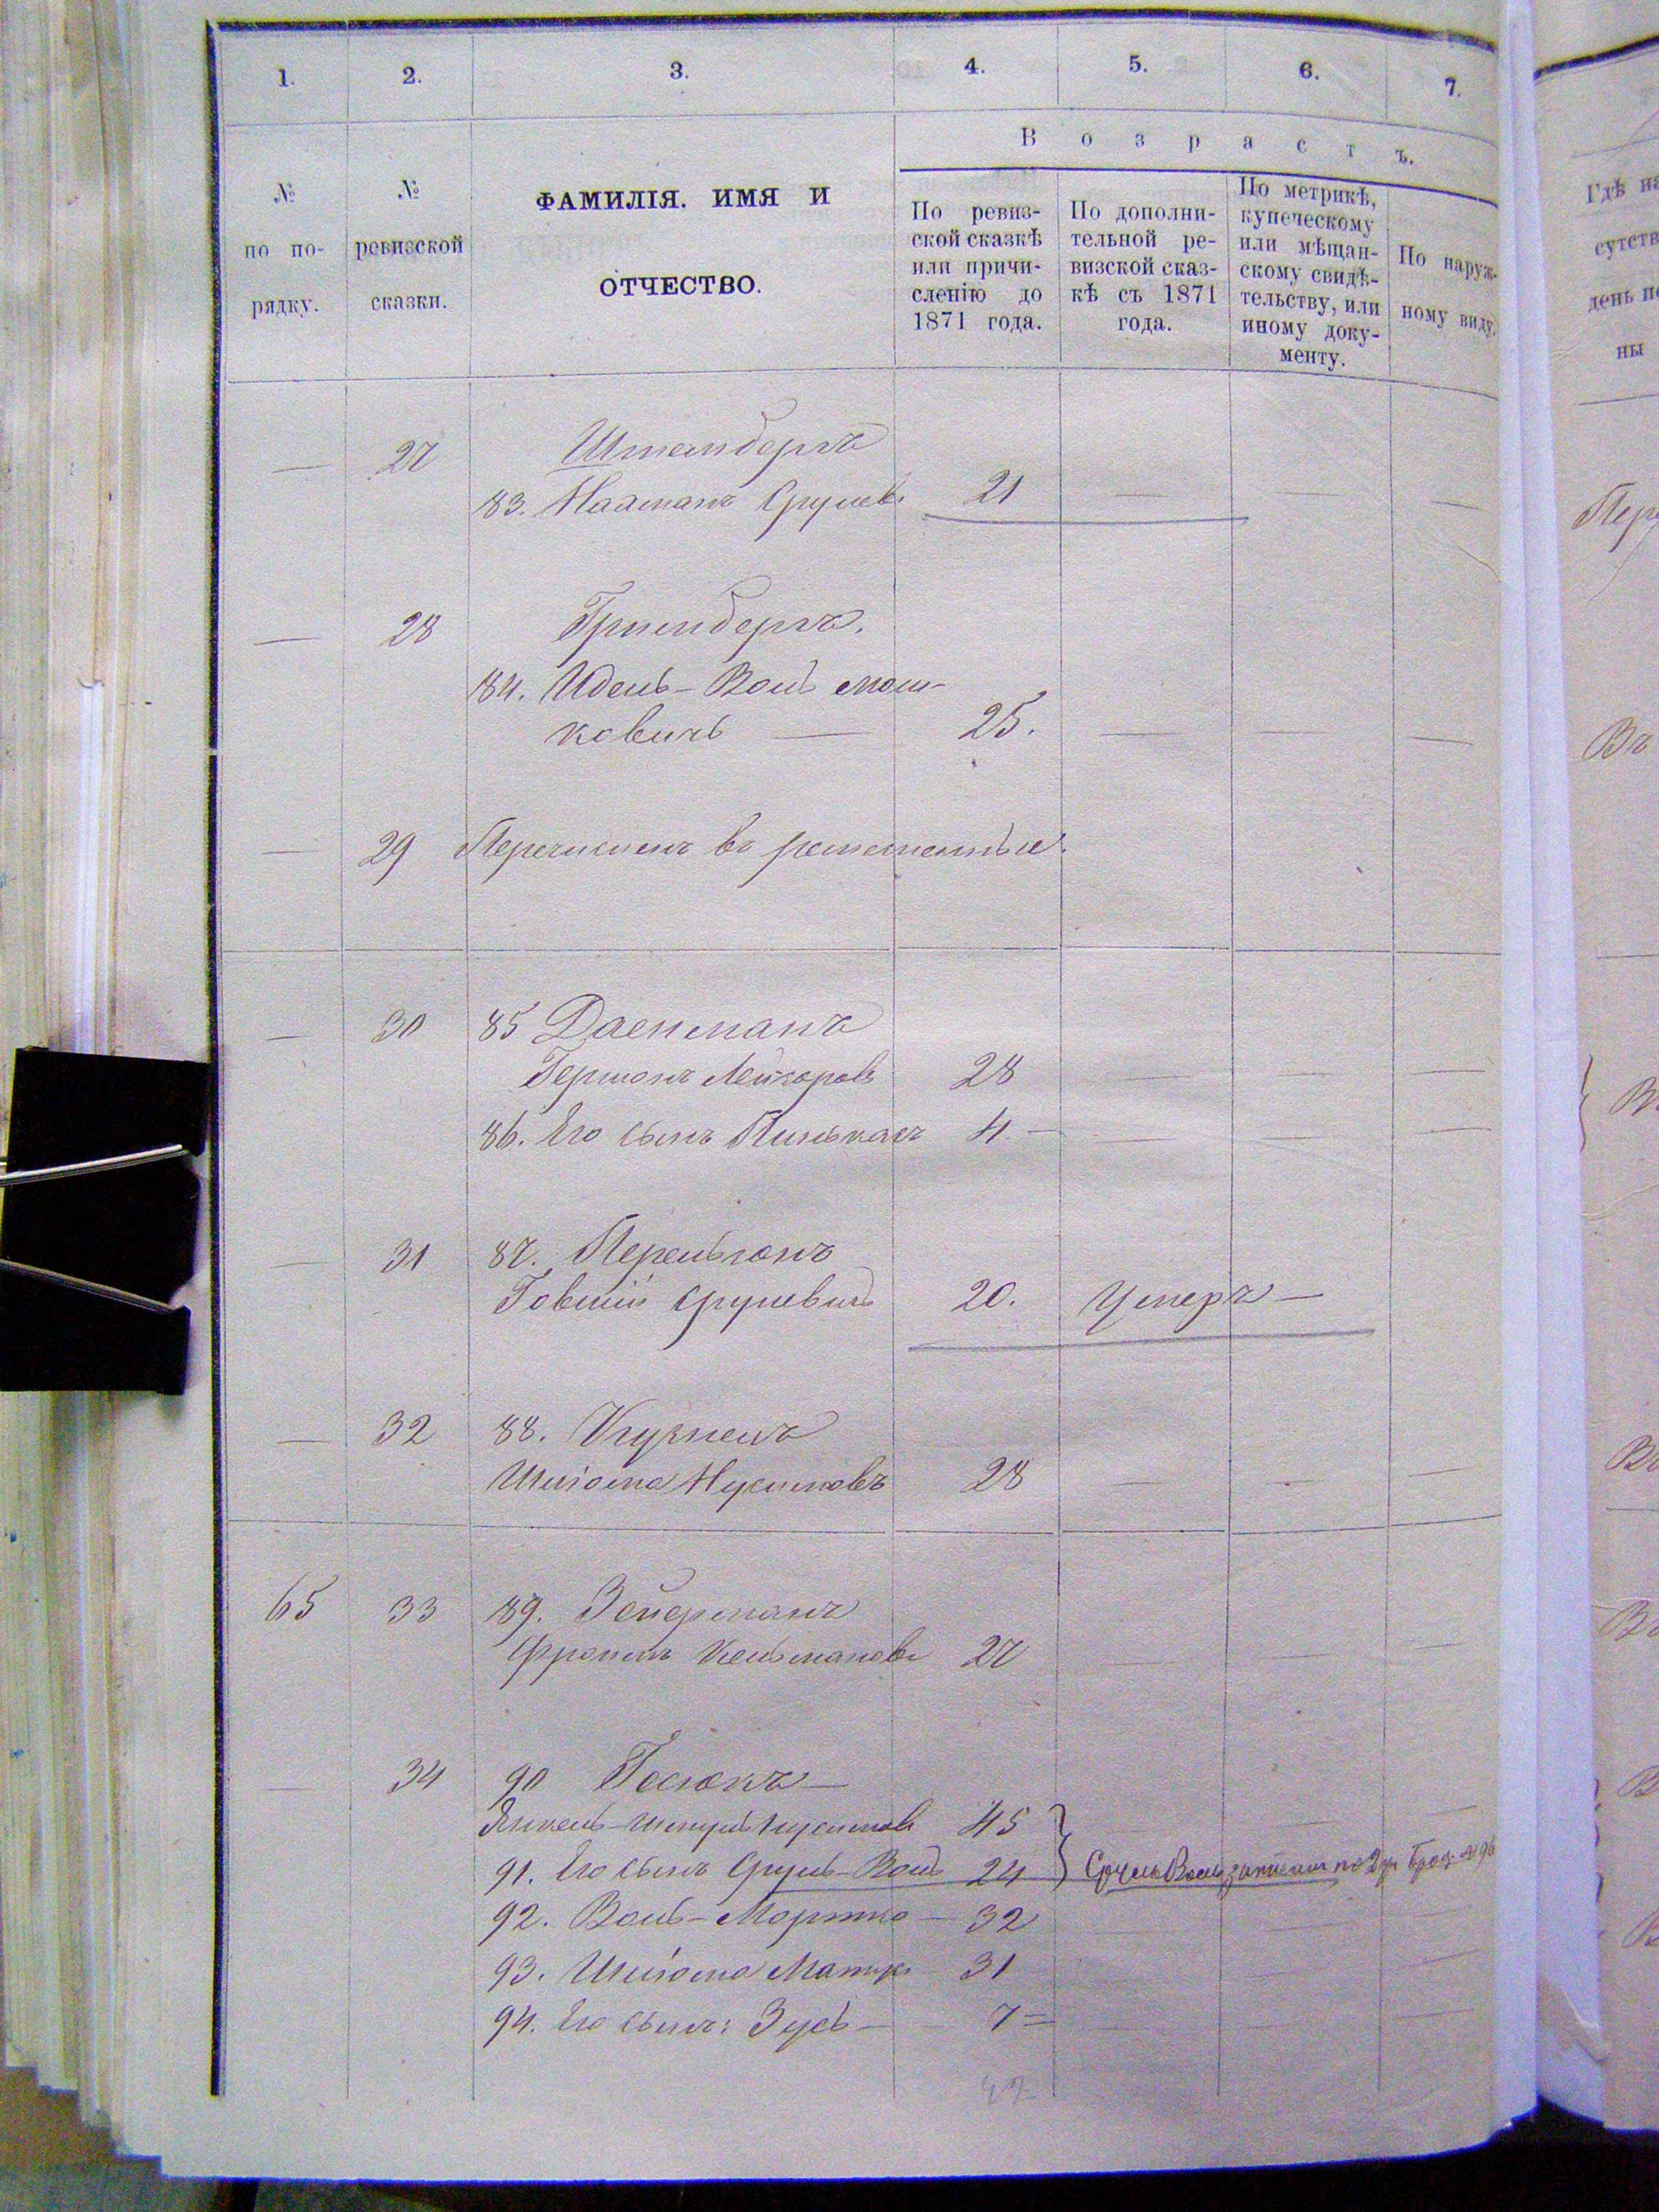 1. 2. 3. 4. 5. 6. 7.
Возрастъ.
№ по по-рядку.
№ ревизской сказки.
ФАМИЛІЯ. ИМЯ И
ОТЧЕСТВО.
По ревиз-
ской сказкѣ
или причи-
сленію до
1871 года.
По дополни-
тельной ре-
визской сказ-
кѣ съ 1871
года.
По метрикѣ,
купеческому
или мѣщан-
скому свидѣ-
тельству, или
иному доку-
менту.
По наруж-
ному виду.
— 27 Штембергъ
83. Нааманъ Срулев. 21 — — —
— 28 Гринбергъ.
84. Идель-Воль Мош-
ковичь — 25. — — —
— 29 Перечисленъ в
— 30 85 Даенманъ
Гершонъ Лейзоровъ 28 — — —
86. Его сынъ Пинькасъ 4 — — — —
— 31 87. Перельсонъ
Говшій Срулевичъ 20. Умеръ —
— 32 88. Кушнеръ
Шліома Нусимовъ 28 — — —
65 33 89. Зейерманъ
Фроимъ Кельманов. 27 — —
— 34 90
Янкель-Шмуль Нусимов 45
91. Его сынъ Сруль-Воль 24 Сруль Воль записан по 2 уч.
92. Воль-Мортко — 32
93. Шліома 31
94. Его сынъ: Зусь — 7 =
Гдѣ на
сутств
день п
ны
Пер
Въ